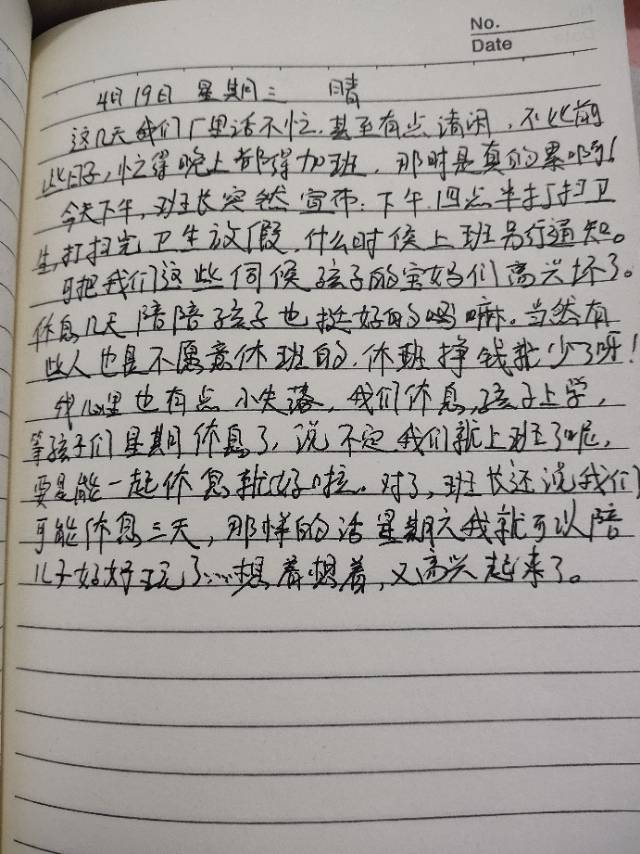 No.
Date
4月19日 星期三 晴
这几天我们厂里活不忙,甚至有点清闲,不比前
些日子,忙得晚上都得加班,那时是真的累啊!
今天下午,班长突然宣布:下午四点半打扫卫
生,打扫完卫生放假,什么时侯上班另行通知。
可把我们这些伺候孩子的宝妈们高兴坏了。
休息几天陪陪孩子也挺好的吗嘛。当然有
些人也是不愿意休班的,休班挣钱就少了呀!
我心里也有点小失落,我们休息,孩子上学,
等孩子们星期休息了,说不定我们就上班了呢,
要是能一起休息就好啦。对了,班长还说我们
可能休息三天,那样的话星期六我就可以陪
儿子好好玩了……想着想着,又高兴起来了。